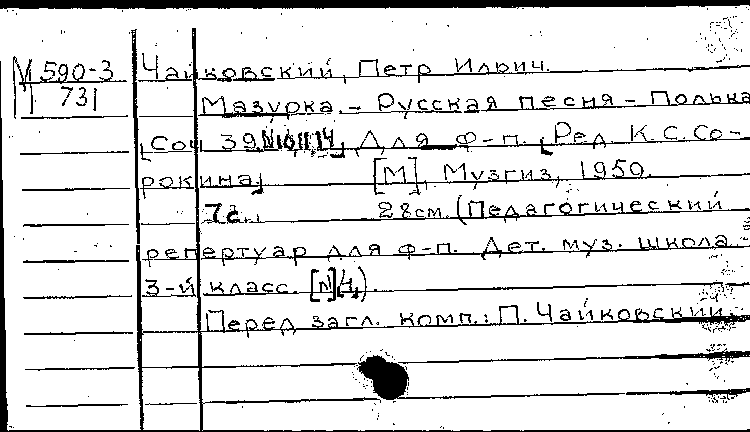 М 590-3 Чайковский, Петр Ильич.
731 Мазурка. - Русская песня - Полька
[Соч 39 №10,11,14] Для ф-п. [Ред К. С. Со-
рокина] [М], Музгиз, 1950.
7с. 28см. (Педагогический
репертуар для ф-п. Дет. муз. школа.
3-й класс.
Перед загл. комп.: П. Чайковский.